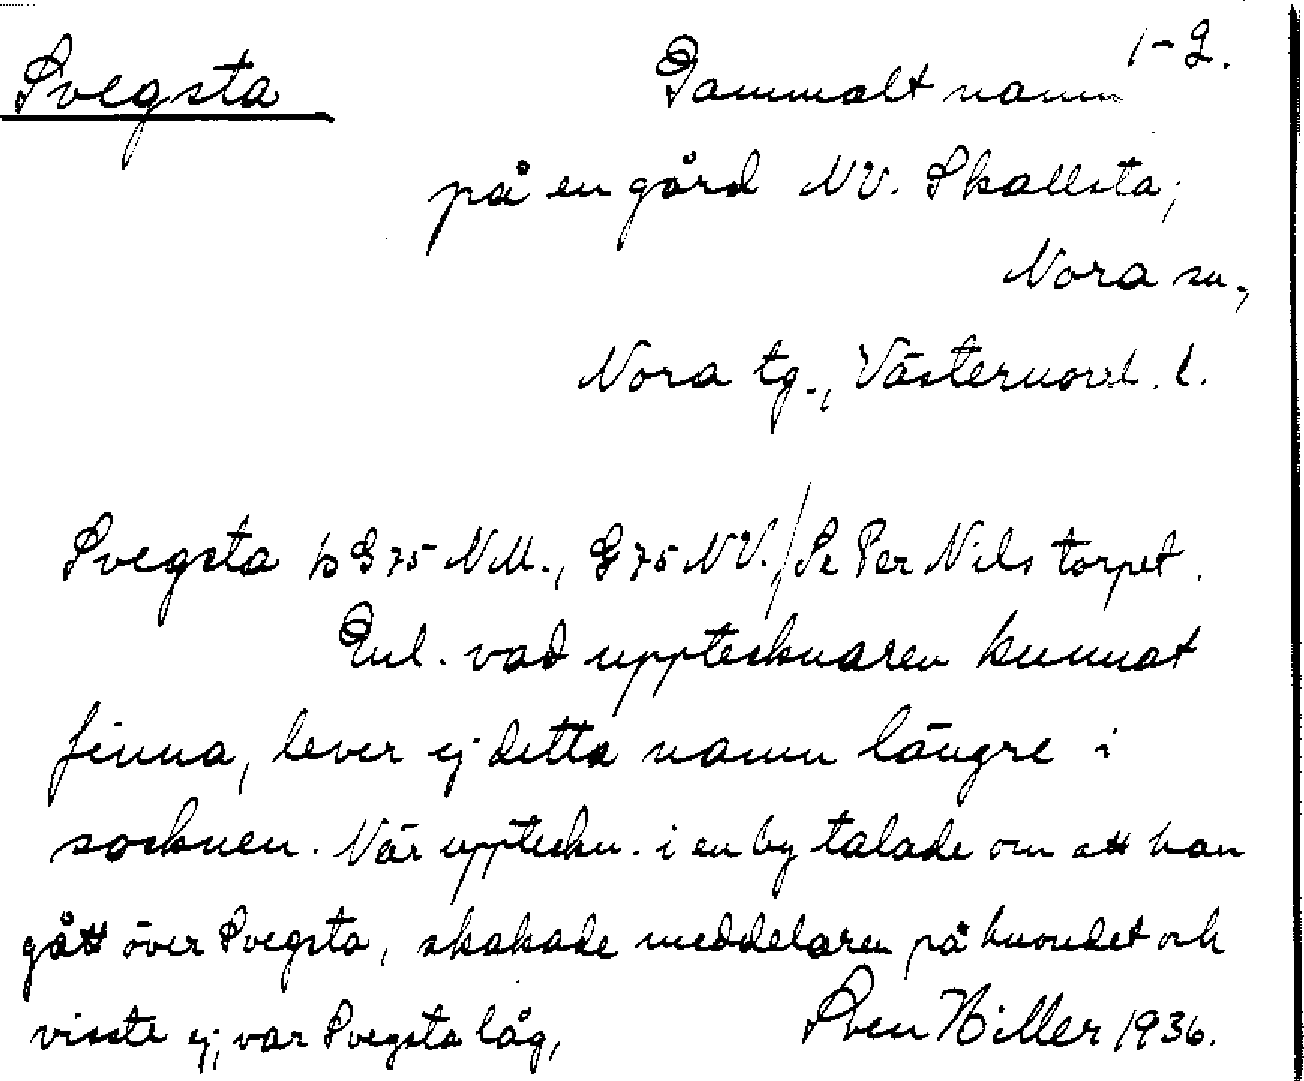 1-2.
Svegsta Gammalt namn
på en gård NV. Skallsta,
Nora sn.,
Nora tg., Västernorrl. l.
Svegsta b G75 NM., G75 NV./Se Per Nils torpet.
Enl. vad upptecknaren kunnat
finna, lever ej detta namn längre i
socknen. När uppteckn. i en by talade om att han
gått över Svegsta, skakade meddelaren på huvudet och
visste ej, var Svegsta låg,
Sven Hiller 1936.